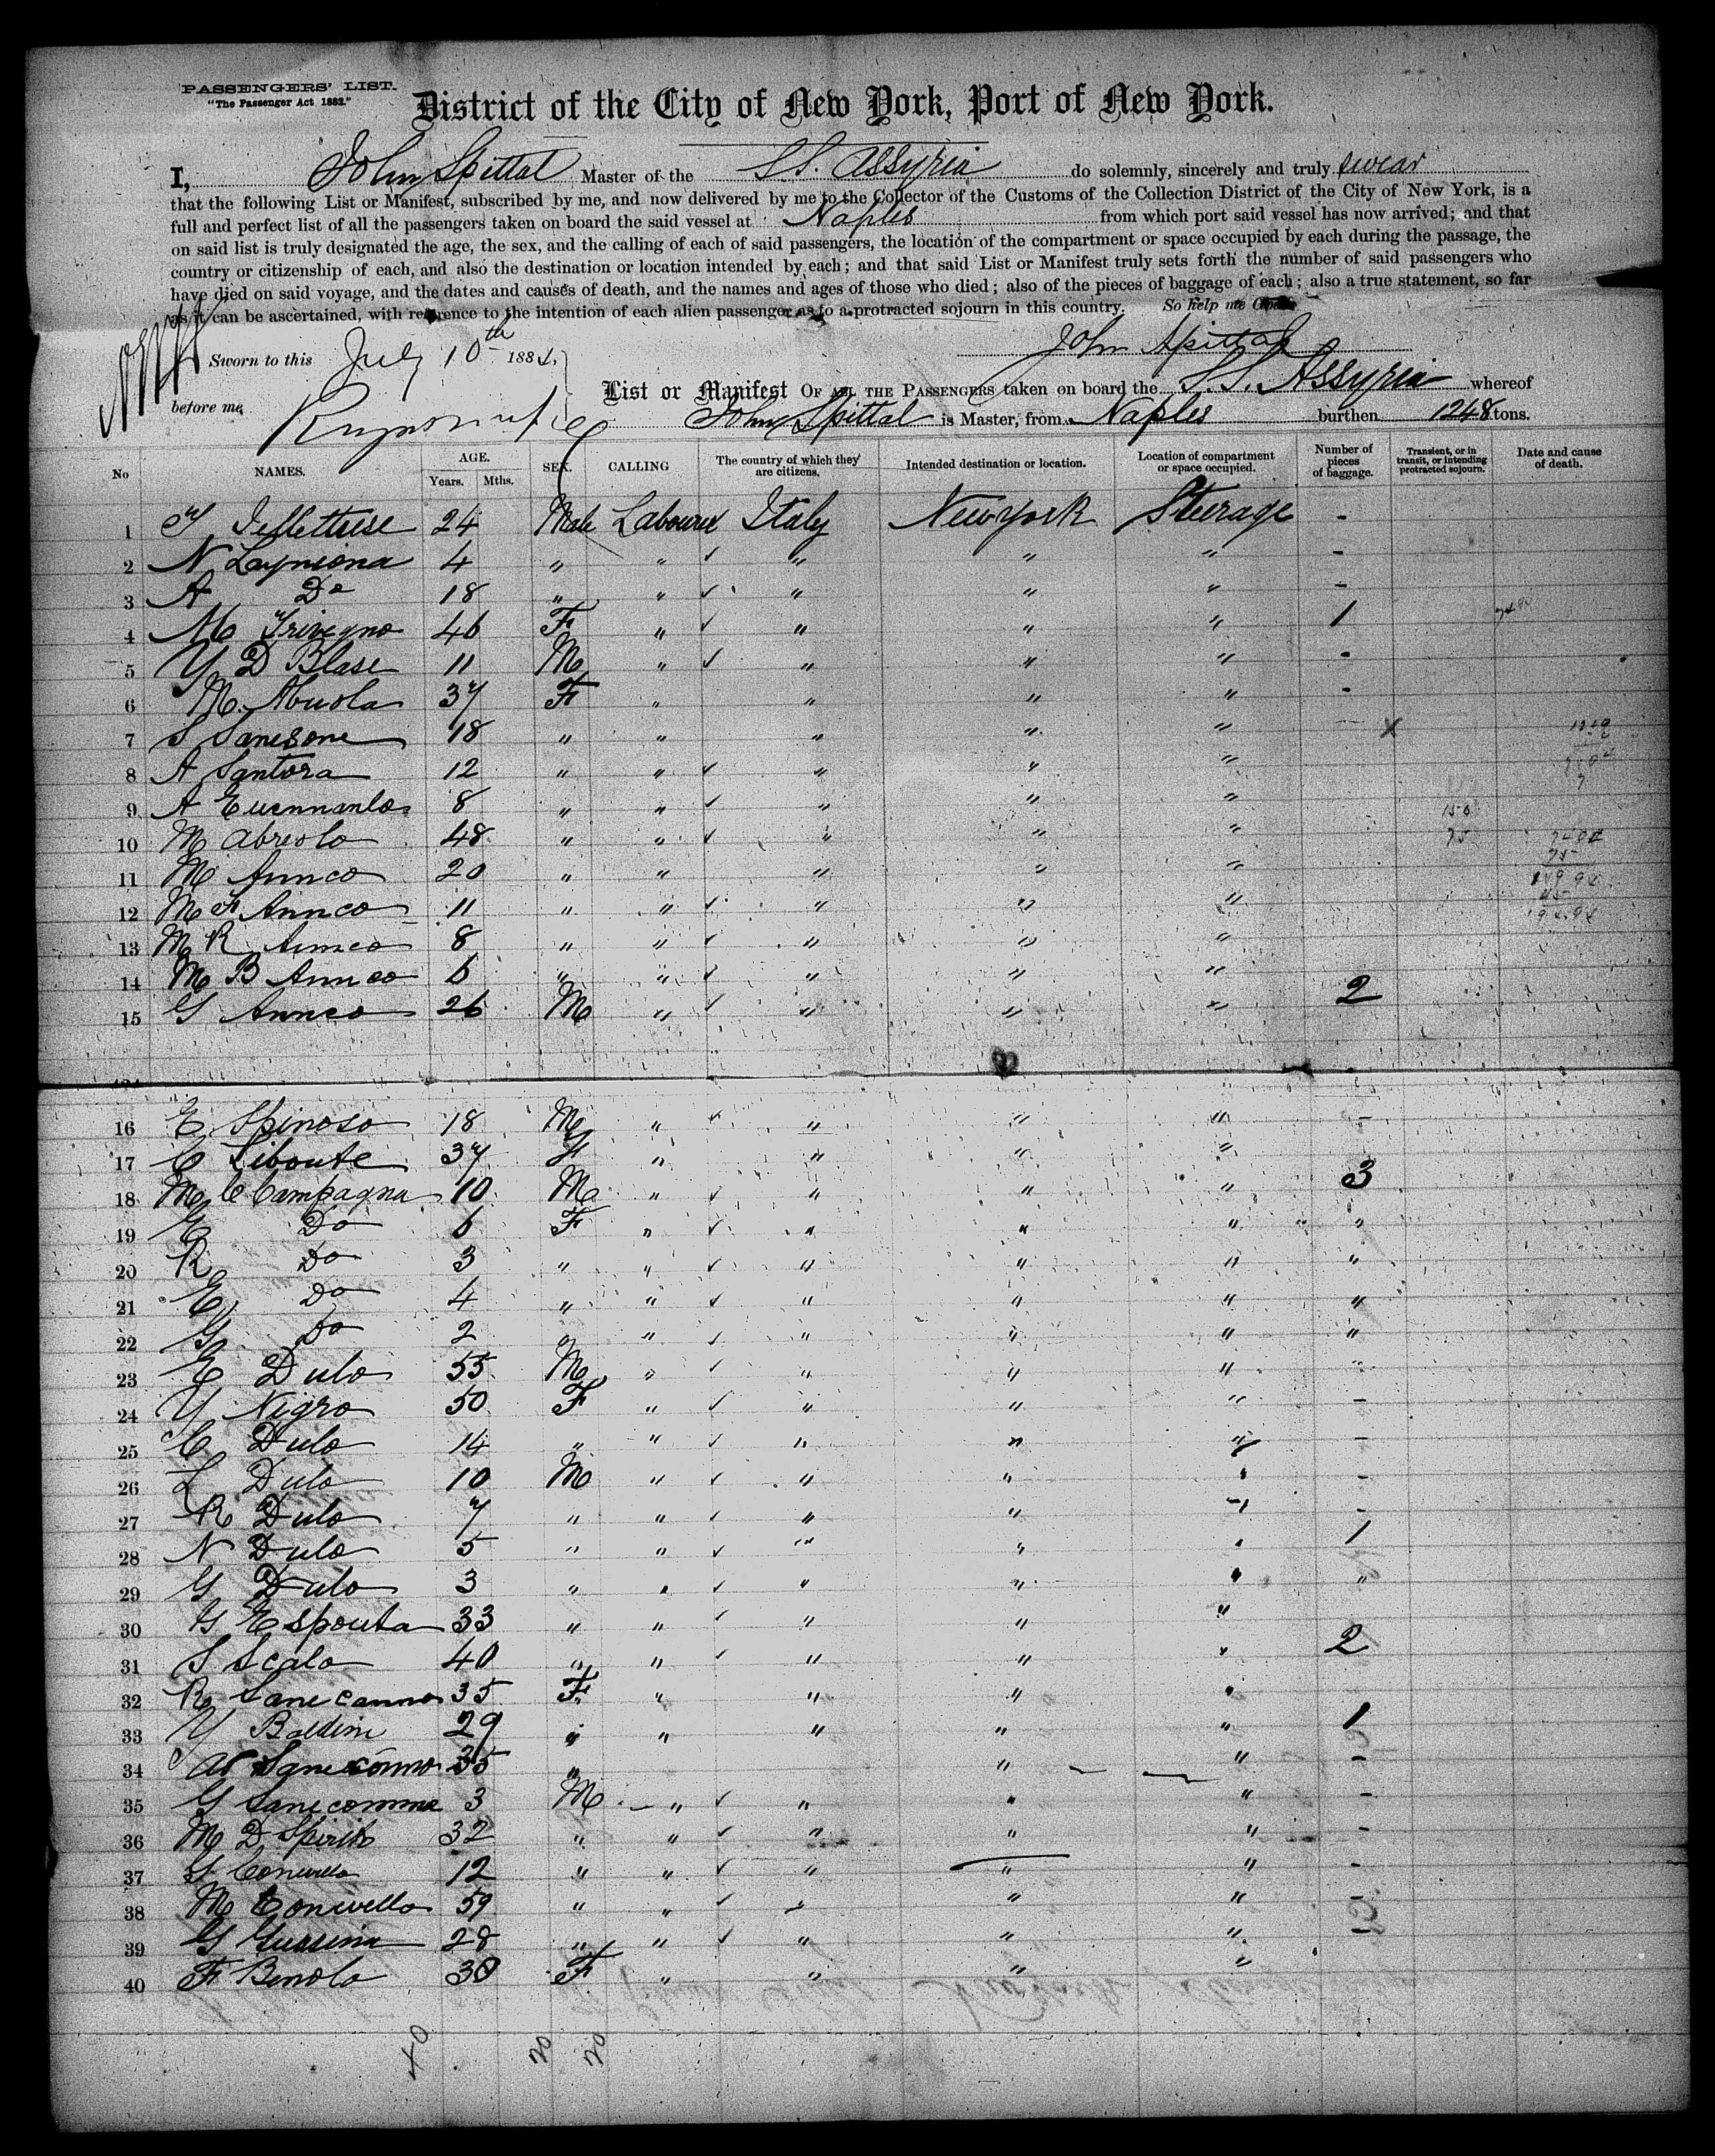 PASSENGERS' LIST.
"The Passenger Act 1882."
District of the City of New York, Port of New York.
I, John Spittal Master of the S.S. Assyria do solemnly, sincerely and truly swear
that the following List or Manifest, subscribed by me, and now delivered by me to the Collector of the Customs of the Collection District of the City of New York, is a
full and perfect list of all the passengers taken on board the said vessel at Naples from which port said vessel has now arrived; and that
on said list is truly designated the age, the sex, and the calling of each of said passengers, the location of the compartment or space occupied by each during the passage, the
country or citizenship of each, and also the destination or location intended by each; and that said List or Manifest truly sets forth the number of said passengers who
have died on said voyage, and the dates and causes of death, and the names and ages of those who died; also of the pieces of baggage of each; also a true statement, so far
as it can be ascertained, with reference to the intention of each alien passenger as to a protracted sojourn in this country. So help me God
John Spittal
Sworn to this July 10th 188
before me
List or Manifest OF ALL THE PASSENGERS taken on board the S.S. Assyria whereof
John Spittal is Master, from Naples burthen 1248 tons.
No NAMES. AGE. Years. Mths. SEX. CALLING The country of which they are citizens. Intended destination or location. Location of compartment or space occupied. Number of pieces of baggage. Transient, or in transit, or intending protracted sojourn. Date and cause of death.
1 24 Male Labourer Italy New York Steerage -
2 N 4 " " " " " -
3 A Do 18 " " " " " -
4 M Trivegno 46 F " " " " 1
5 Y D Blase 11 M " " " " -
6 M. 37 F " " " " -
7 S Sanesone 18 " " " " "
8 A Santora 12 " " " " "
9 A 8 " " " " "
10 M Abreolo 48 " " " " "
11 M Annco 20 " " " " "
12 M F Annco 11 " " " " "
13 M R Annco 8 " " " " "
14 M B Annco 6 " " " " "
15 G Annco 26 M " " " " 2
16 E Spinoso 18 M " " " " -
17 C Liboute 37 F " " " "
18 M C Campagna 10 M " " " " 3
19 E Do 6 F " " " " "
20 R Do 3 " " " " " "
21 E Do 4 " " " " " "
22 G Do 2 " " " " " "
23 E Dulo 55 M " " " " "
24 Y Nigro 50 F " " " " -
25 C Dulo 14 " " " " " -
26 L Dulo 10 M " " " " -
27 R Dulo 7 " " " " " -
28 N Dulo 5 " " " " " 1
29 G Dulo 3 " " " " " "
30 G Espouta 33 " " " " "
31 S Scalo 40 " " " " " 2
32 R Sanecanno 35 F " " " "
33 Y Baldini 29 " " " " " 1
34 Sanecomo 35 " " " -
35 G Sanecomma 3 M " " " " -
36 M D Spirito 32 " " " " " -
37 G Conivello 12 " " " " " -
38 M Conivello 59 " " " " " -
39 G Gussina 28 " " " " " -
40 F Benola 30 F " " " "
40 20 20